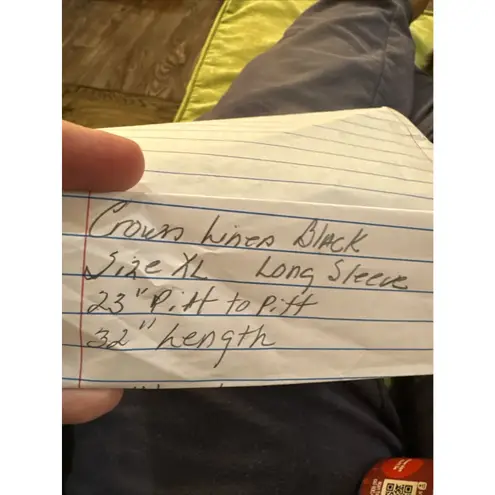 Crown Linen Black
Size XL Long Sleeve
23" Pitt to Pitt
32" Length